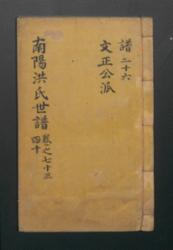 譜二十六
文正公派
南陽洪氏世譜卷之七十三
四十